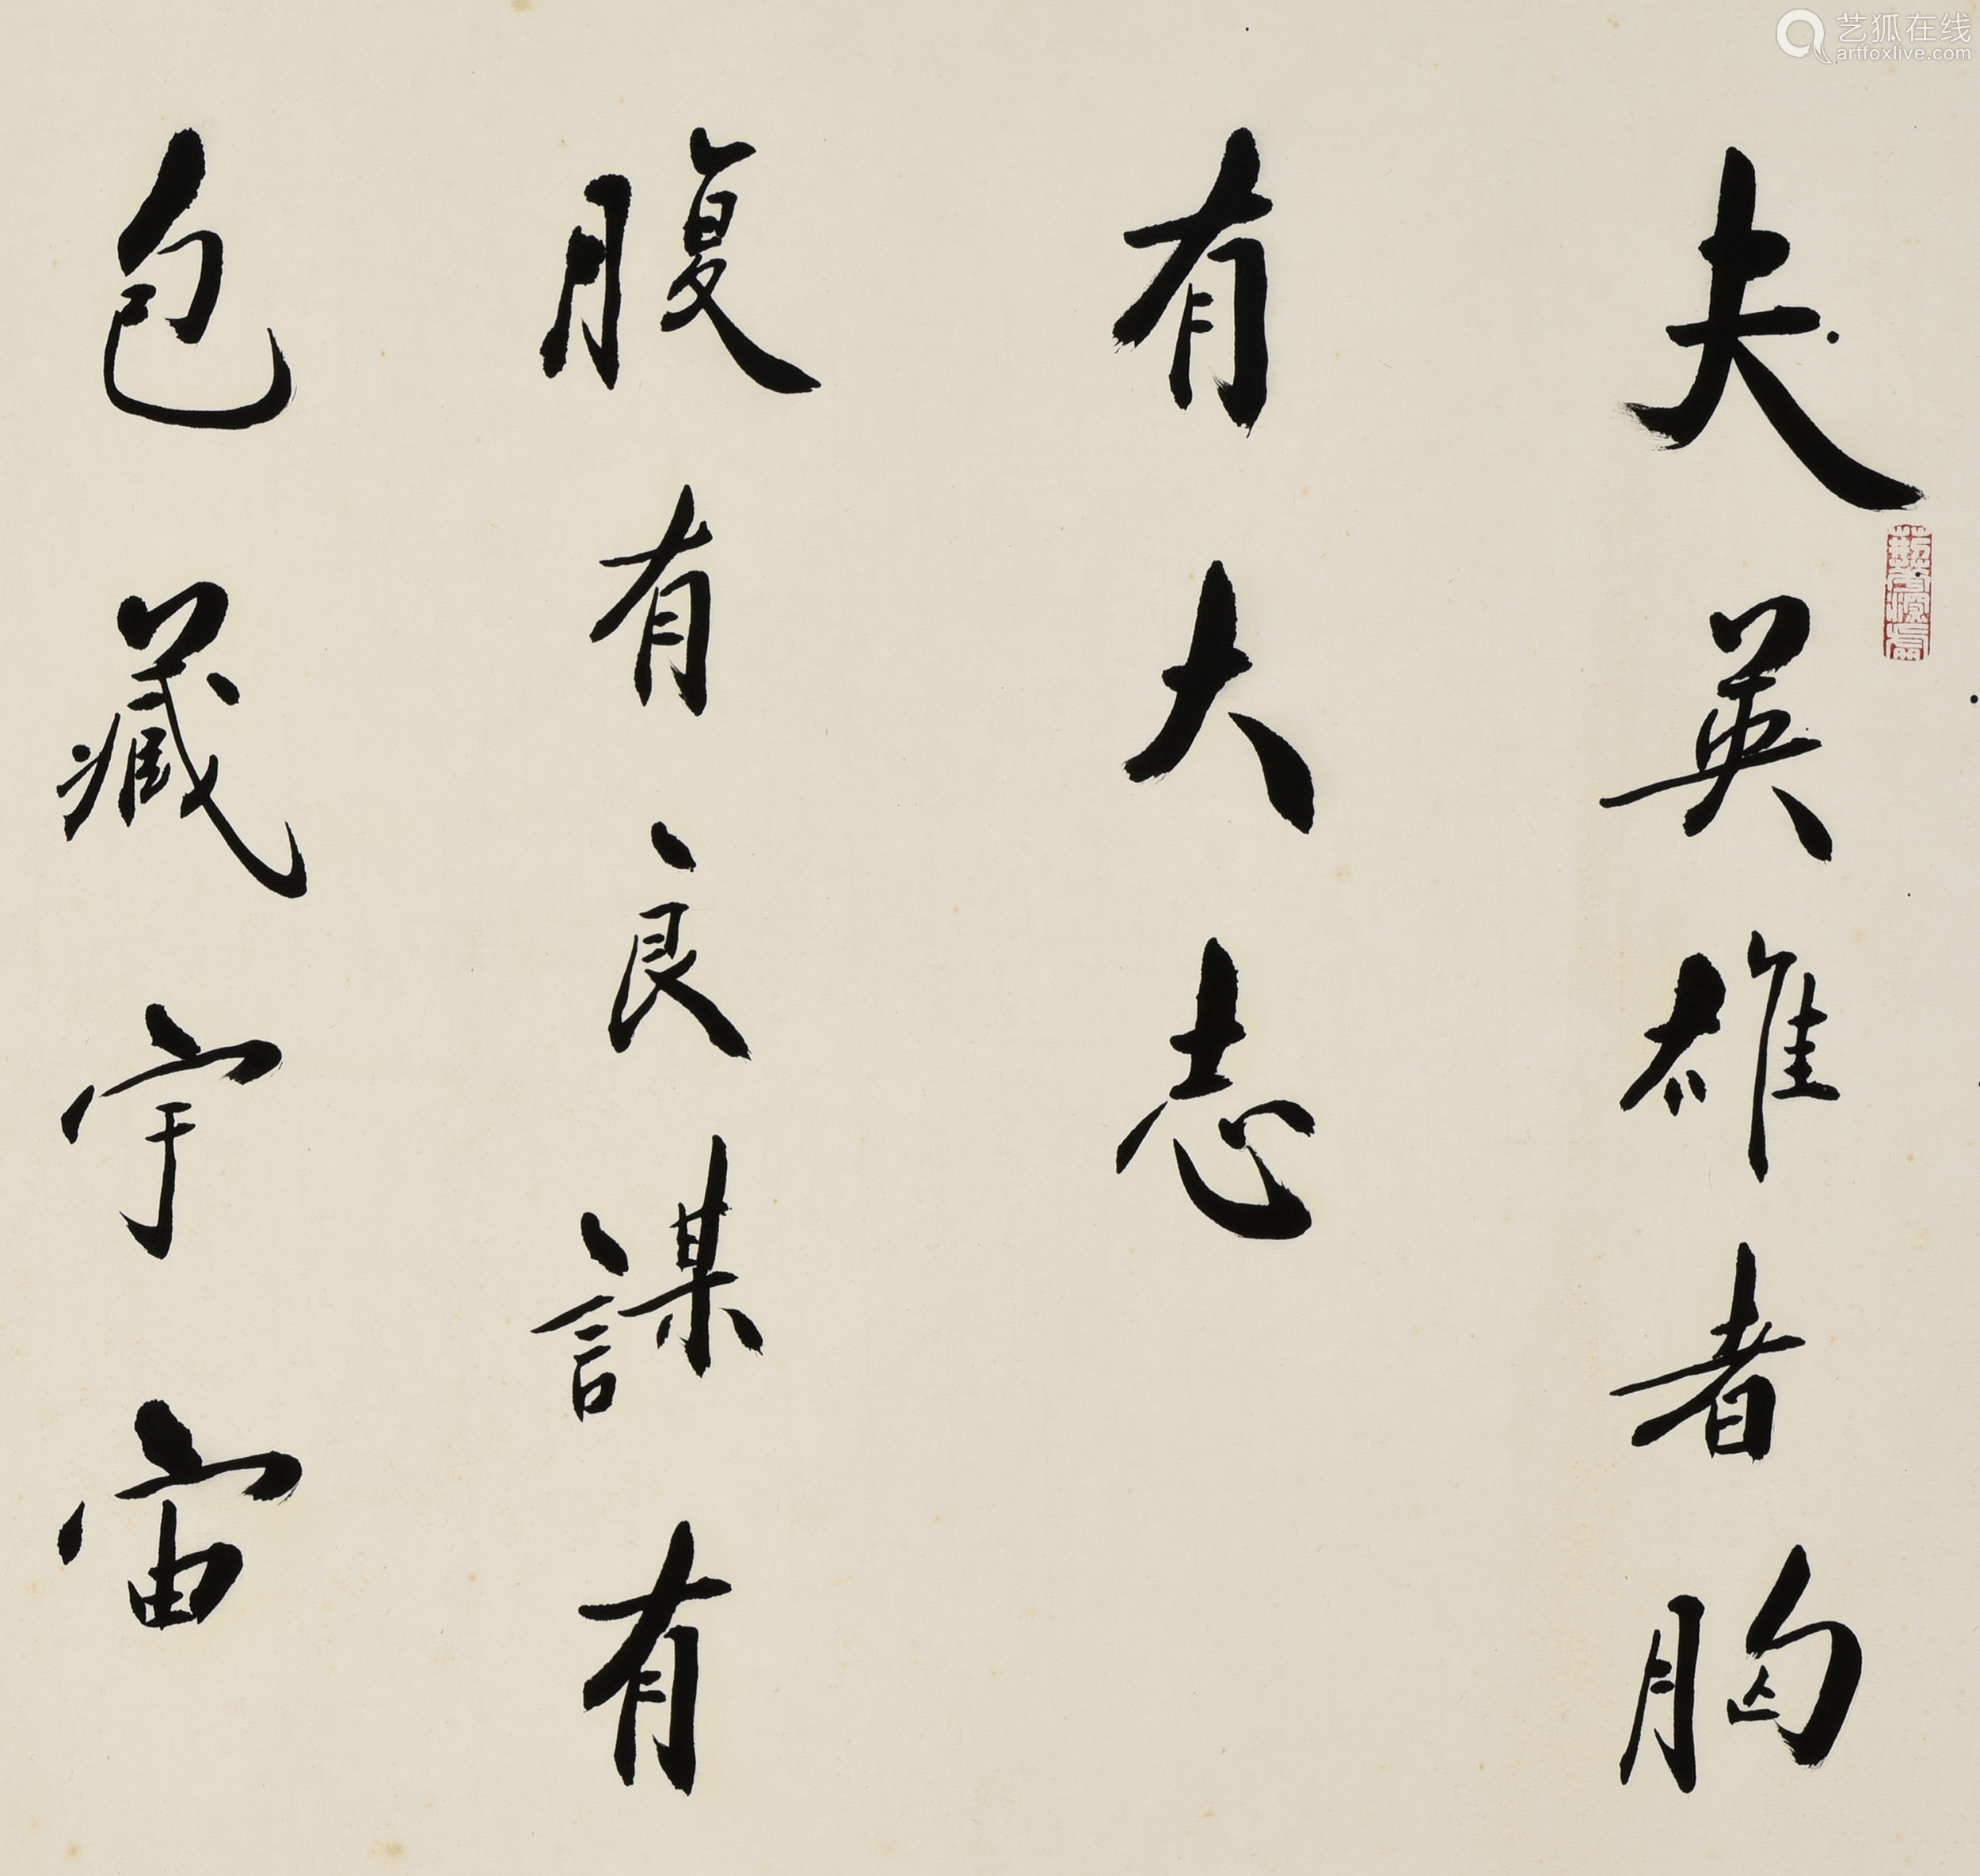 夫英雄者胸
有大志
腹有良謀有
包藏宇宙
艺狐在线
artfoxlive.com